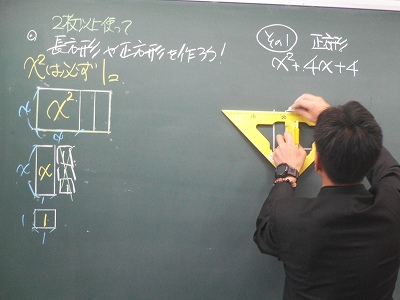 2枚以上使って
◎ 長方形や正方形を作ろう!
x²は必ず1こ
x x²
x
x x
1 1
1
正方形
x²+4x+4